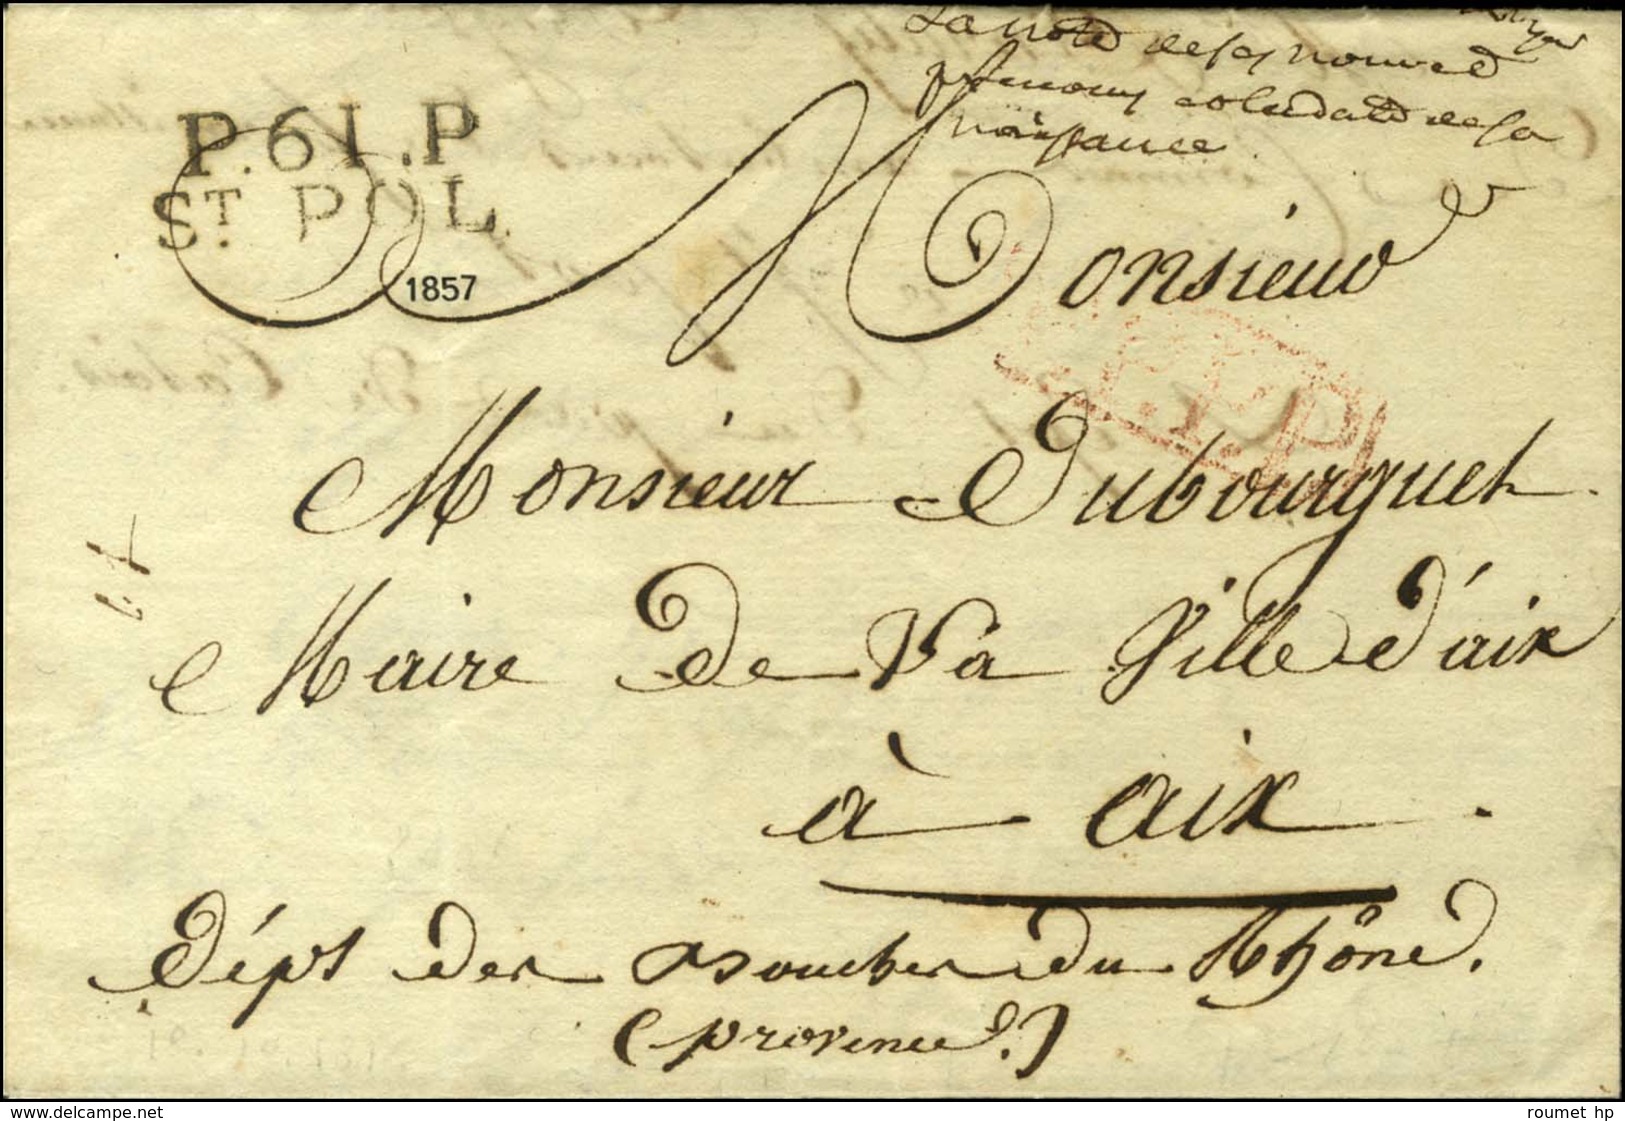 La note de ses nom et
prénoms et la date de sa
naissance
P.61.P
ST. POL.
1857
Monsieur
P.P.
Monsieur Dubourguet
Maire De La Ville d'aix
à aix.
Dépt des Bouches du Rhône.
(provence.)
www.delcampe.net
roumet hp